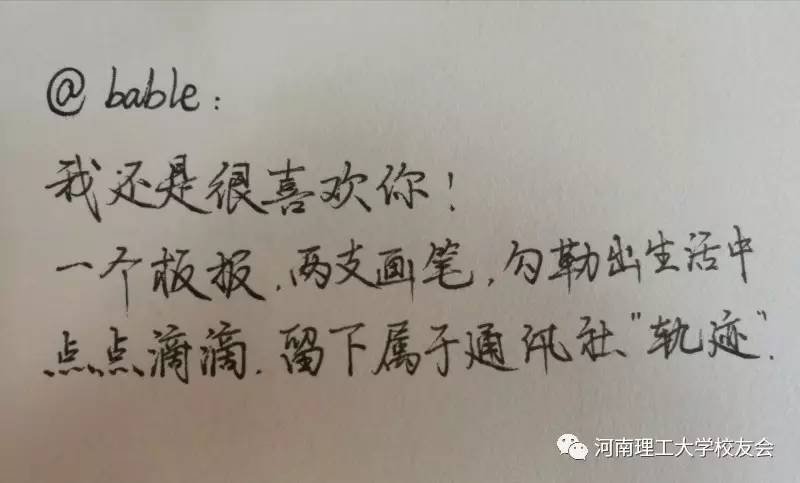 @ bable：
我还是很喜欢你！
一个板报，两支画笔，勾勒出生活中
点点滴滴．留下属于通讯社"轨迹"．
河南理工大学校友会